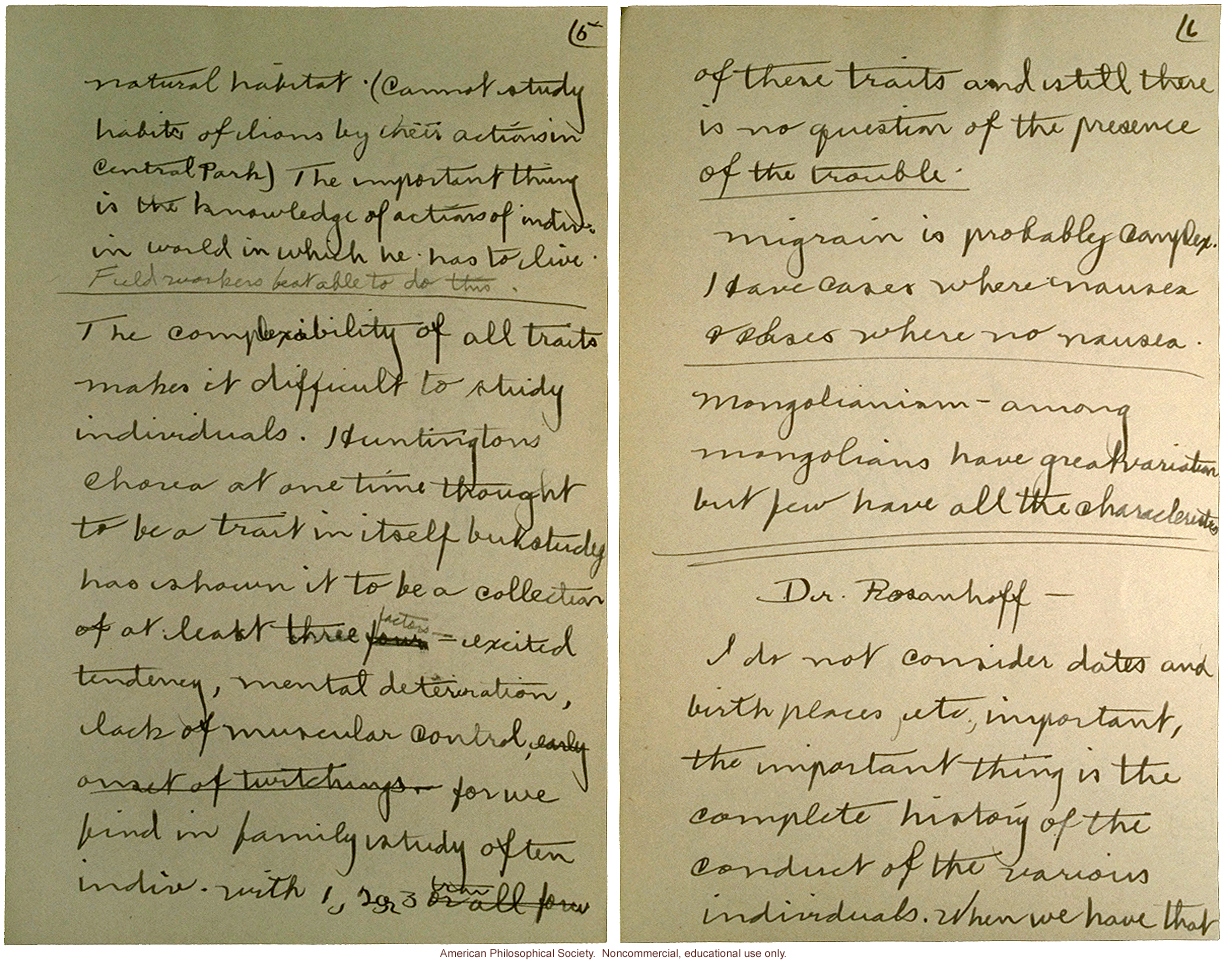 15
natural habitat. (Cannot study
habits of lions by their actions in
Central Park) The important thing
is the knowledge of actions of indiv.
in world in which he has to live.
Field workers best able to do this.
The complexibility of all traits
makes it difficult to study
individuals. Huntingtons
chorea at one time thought
to be a trait in itself but study
has shown it to be a collection
factors
of at least three four = excited
tendency, mental deterioration,
lack of muscular control, early
onset of twitchings. for we
find in family study often
indiv. with 1, 2 or 3 or all four
16
of these traits and still there
is no question of the presence
of the trouble.
migrain is probably complex.
Have cases where nausea
& cases where no nausea.
Mongolianism - among
mongolians have great variation
but few have all the characteristics
Dr. Rosanhoff -
I do not consider dates and
birth places, etc., important,
the important thing is the
complete history of the
conduct of the various
individuals. When we have that
American Philosophical Society. Noncommercial, educational use only.